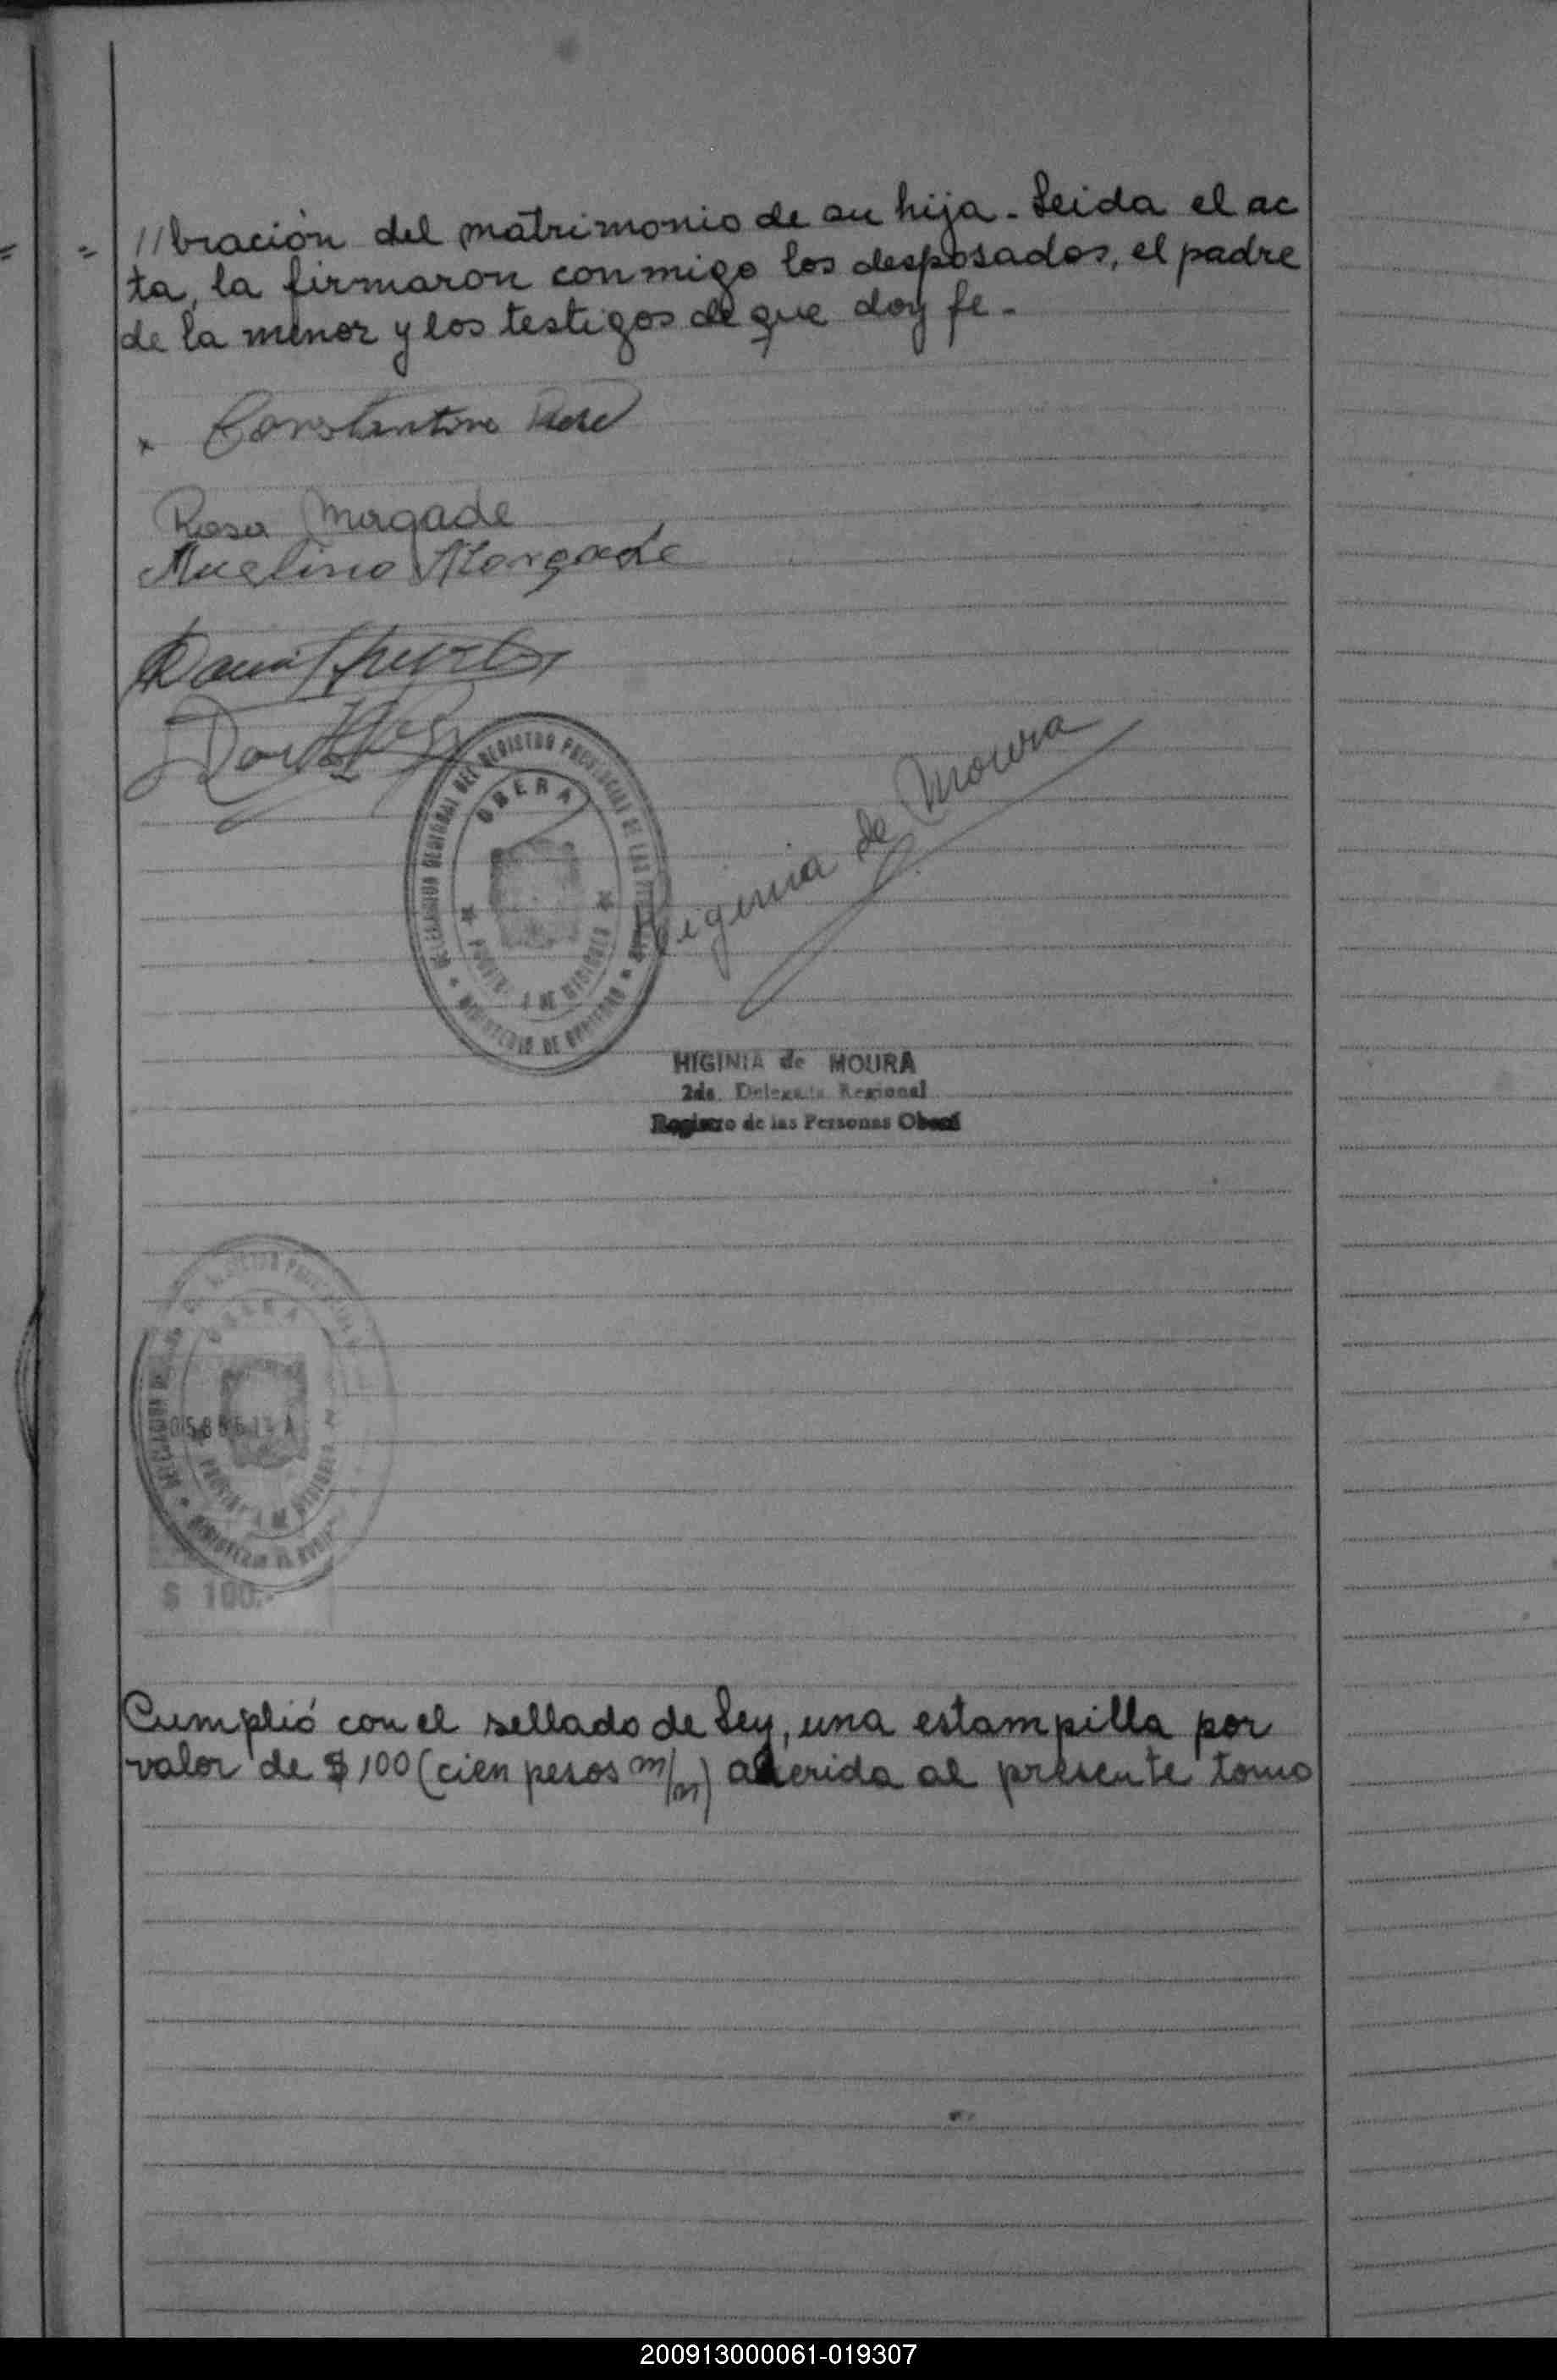 //bración del matrimonio de su hija - Leida el ac
ta, la firmaron conmigo los desposados, el padre
de la menor y los testigos de que doy fe -
Constantino
Rosa Morgade
Morgade
DELEGACION REGIONAL DEL REGISTRO PROVINCIAL DE LAS
OBERA
PROVINCIA DE MISIONES
MINISTERIO DE GOBIERNO
Higinia de Moura
HIGINIA de MOURA
2da. Delegada Regional
Registro de las Personas Oberá
OBERA
PROVINCIA DE MISIONES
$ 100.-
Cumplió con el sellado de Ley, una estampilla por
valor de $ 100 (cien pesos m/n) aderida al presente tomo
200913000061-019307